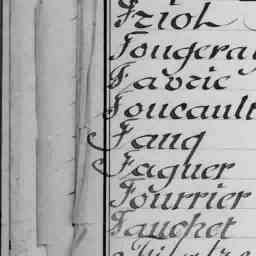 Friol
Fougeray
Favrie
Foucault
Fang
Faguer
Fourrier
Fauchet